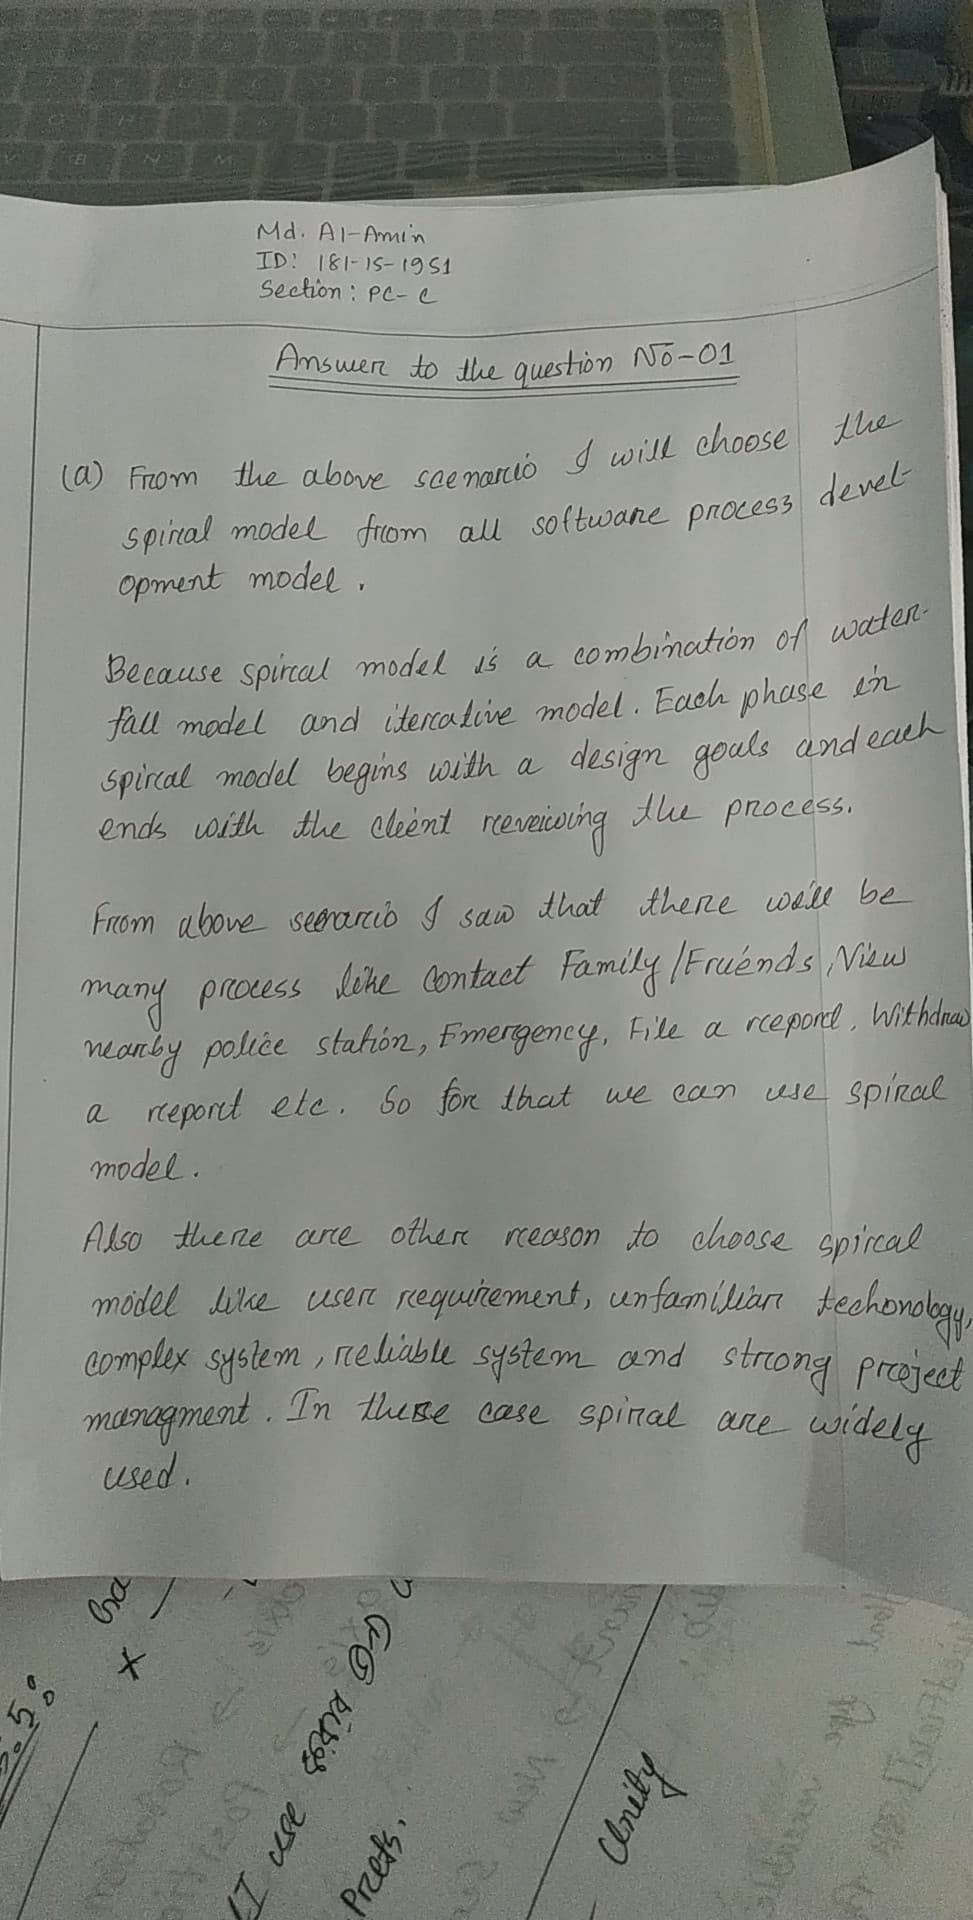 Md. Al-Amin
ID: 181-15-1951
Section: PC-C
Answer to the question No-01
(a) From the above scenario I will choose the
spiral model from all software process devel-
opment model.
Because spiral model is a combination of water-
fall model and iterative model. Each phase in
spiral model begins with a design goals and each
ends with the client reveiwing the process.
From above senario I saw that there will be
many process like Contact Family/Friends, View
nearby police station, Emergency, File a report, Withdraw
a report etc. So for that we can use spiral
model.
Also there are other reason to choose spiral
model like user requirement, unfamiliar techonology,
complex system, reliable system and strong project
managment. In these case spiral are widely
used.
I use
Unity